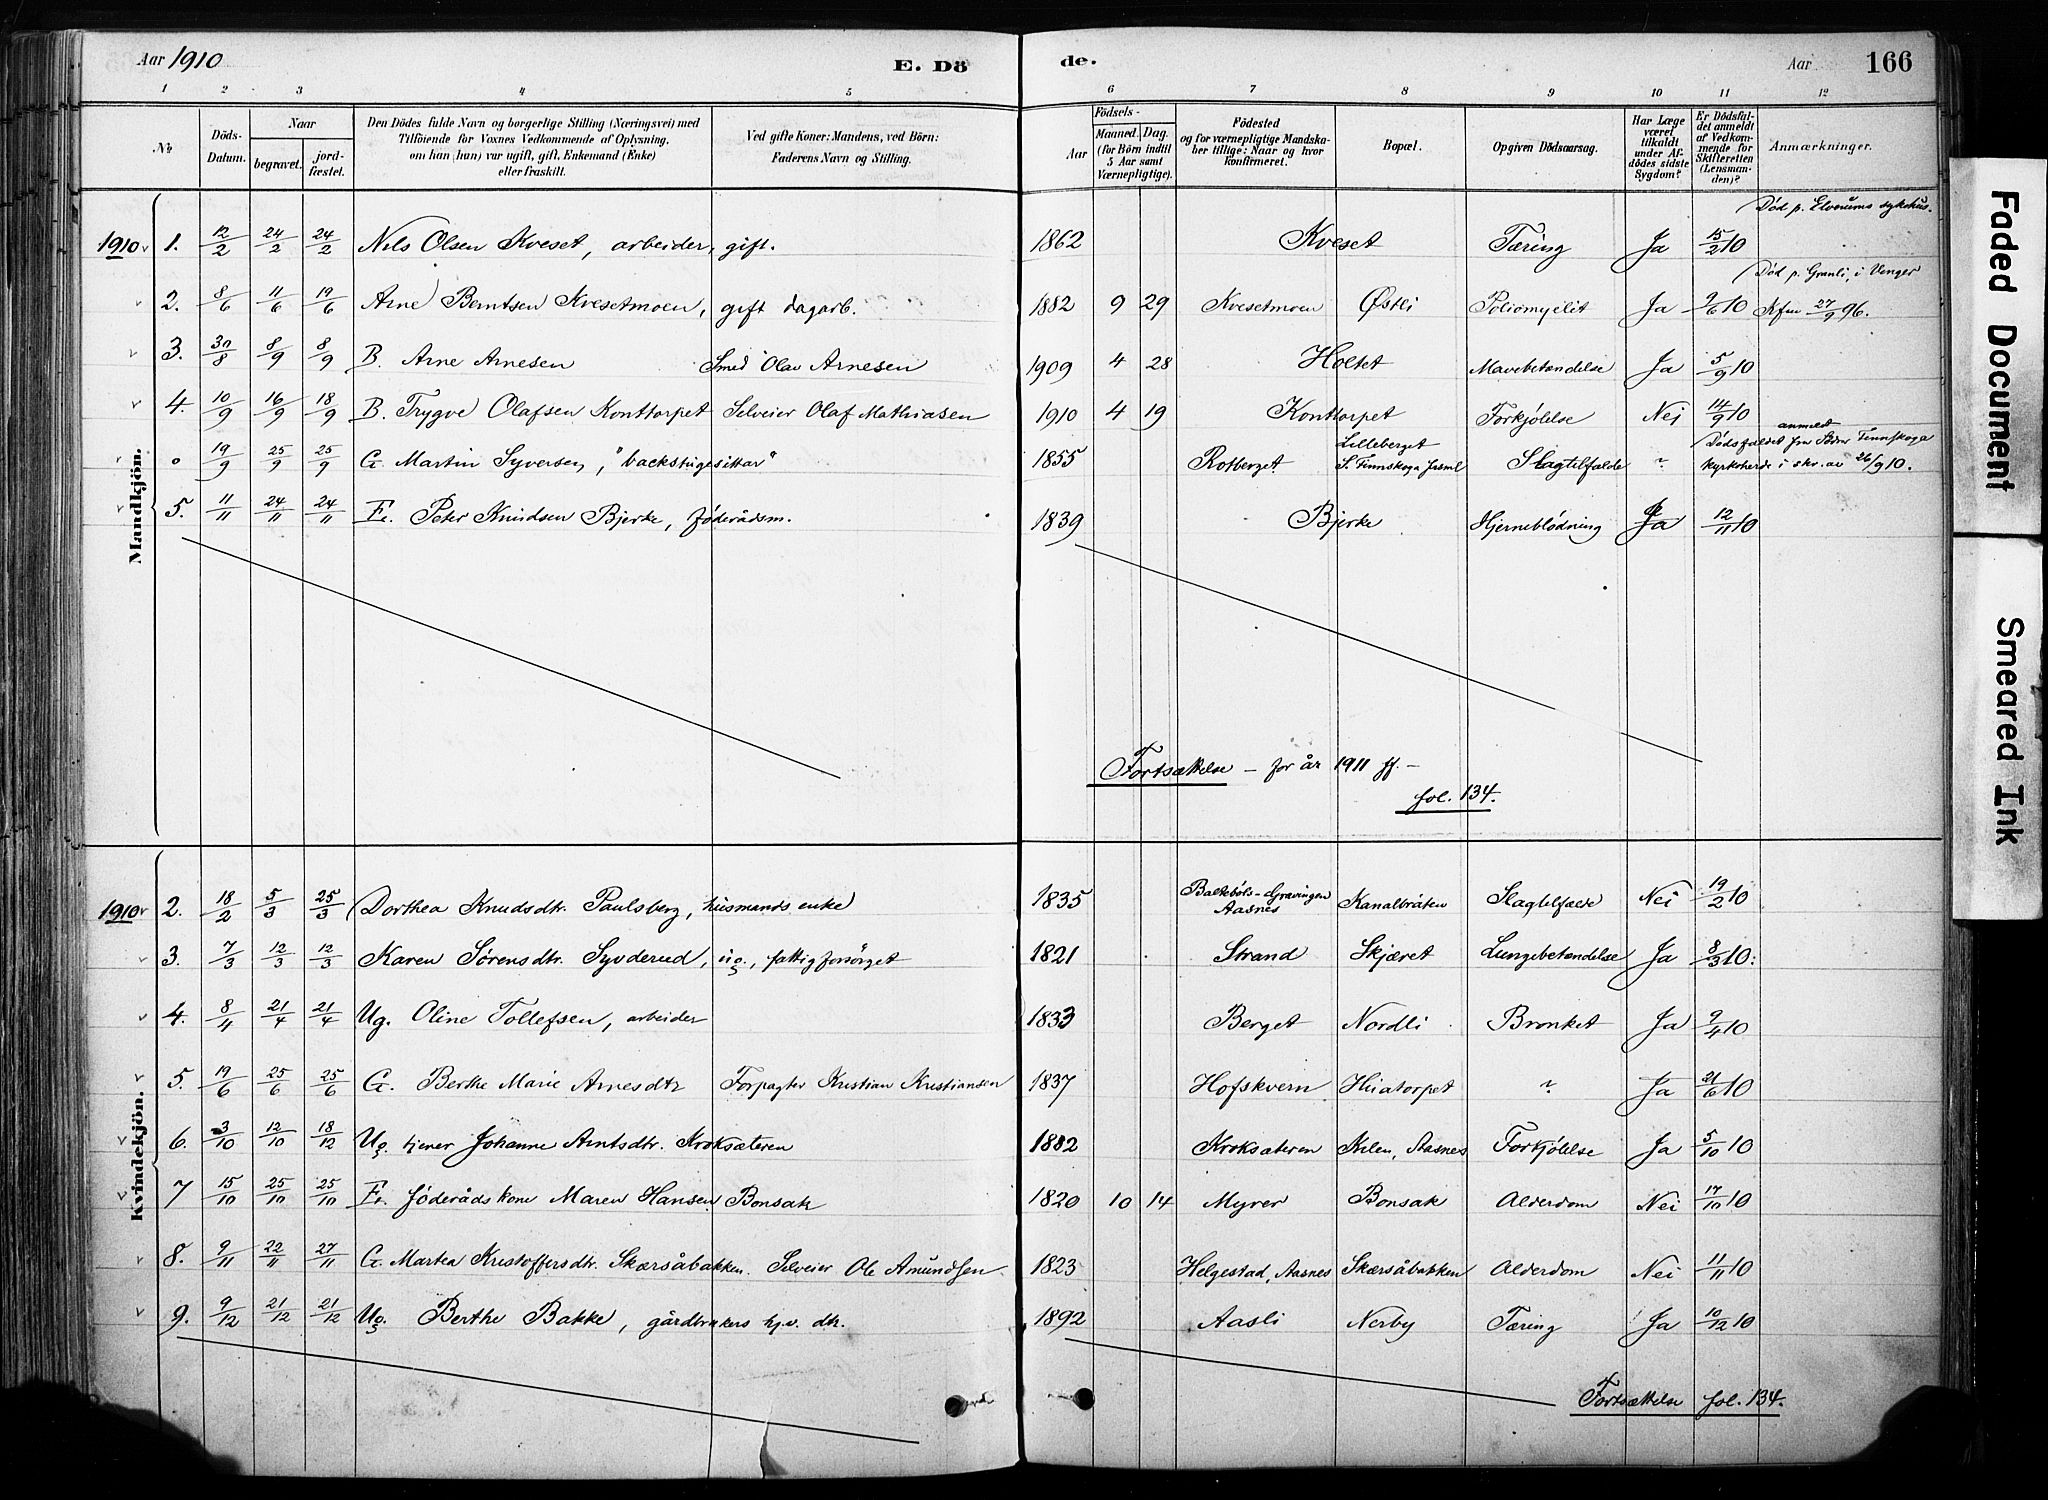 Aar 1910
E. Dö
de.
Aar
166
1 2 3 4 5 6 7 8 9 10 11 12
Nr.
Döds-Datum.
Naar
begravet.
jord-fæstet.
Den Dödes fulde Navn og borgerlige Stilling (Næringsvei) med
Tilföiende for Voxnes Vedkommende af Oplysning,
om han (hun) var ugift, gift, Enkemand (Enke)
eller fraskilt.
Ved gifte Koner: Mandens, ved Börn:
Faderens Navn og Stilling.
Födsels-
Aar
Maaned. Dag.
(for Börn indtil
5 Aar samt
Værnepligtige).
Födested
og for værnepligtige Mandska-
ber tillige: Naar og hvor
konfirmeret.
Bopæl.
Opgiven Dödsaarsag.
Har Læge
været
tilkaldt
under Af-
dödes sidste
Sygdom?
Er Dödsfal-
det anmeldt
af Vedkom-
mende for
Skifteretten
(Lensman-
den)?
Anmærkninger.
Mandkjön.
Död p. Elverums sykehus.
1910 1. 12/2 24/2 24/2 Nils Olsen Kveset, arbeider, gift. 1862 Kveset Tæring Ja 15/2 10
Död p. Granli, i Vinger
2. 8/6 11/6 19/6 Arne Berntsen Kvesetmoen, gift dagarb. 1882 9 29 Kvesetmoen Østli Poliomyelit Ja 9/6 10 Kfm 27/9 96.
3. 30/8 8/9 8/9 B. Arne Arnesen Smed Olav Arnesen 1909 4 28 Holtet Mavebetændelse Ja 5/9 10
4. 10/9 16/9 18/9 B. Trygve Olafsen Konttorpet Selveier Olaf Mathiasen 1910 4 19 Konttorpet Forkjølelse Nei 14/9 10
o 19/9 25/9 25/9 G. Martin Syversen, "backstugesittar" 1855 Rotberget Lilleberget S. Finnskoga Slagtilfælde ? Dödsfaldet anmeldt fra Södra Finnskoga kyrkoherde i skr. av 26/9 10.
5. 11/11 24/11 24/11 E. Peter Knudsen Bjerke, föderådsm. 1839 Bjerke Hjerneblödning Ja 12/11 10
Fortsættelse – for år 1911 ff. –
fol. 134.
Kvindekjön.
1910 2. 18/2 5/3 25/3 Dorthea Knudsdtr. Paulsberg, husmands enke 1835 Baltebøls-Gravingen Aasnes Kanalbråten Slagtilfælde Nei 19/2 10
3. 7/3 12/3 12/3 Karen Sørensdtr. Syvderud, ug., fattigforsörget 1821 Strand Skjæret Lungebetændelse Ja 8/3 10.
4. 8/4 21/4 21/4 Ug. Oline Tollefsen, arbeider 1833 Berget Nordli Bronket Ja 9/4 10
5. 19/6 25/6 25/6 G. Berthe Marie Arnesdtr Forpagter Kristian Kristiansen 1837 Hofskvern Huatorpet ? Ja 21/6 10
6. 3/10 12/10 18/12 Ug. tjener Johanne Arntsdtr. Kroksæteren 1882 Kroksæteren Kilen, Aasnes Forkjølelse Ja 5/10 10
7 15/10 25/10 25/10 E. föderådskone Maren Hansen Bonsak 1820 10 14 Myrer Bonsak Alderdom Nei 17/10 10
8. 9/11 22/11 27/11 G. Martea Kristoffersdtr. Skærsåbakken. Selveier Ole Amundsen 1823 Helgestad, Aasnes Skærsåbakken Alderdom Nei 11/11 10
9. 9/12 21/12 21/12 Ug. Berthe Bakke, gårdbrukers hj.v. dtr. 1892 Aasli Nerby Tæring Ja 10/12 10
Fortsættelse fol. 134.
Faded Document
Smeared Ink